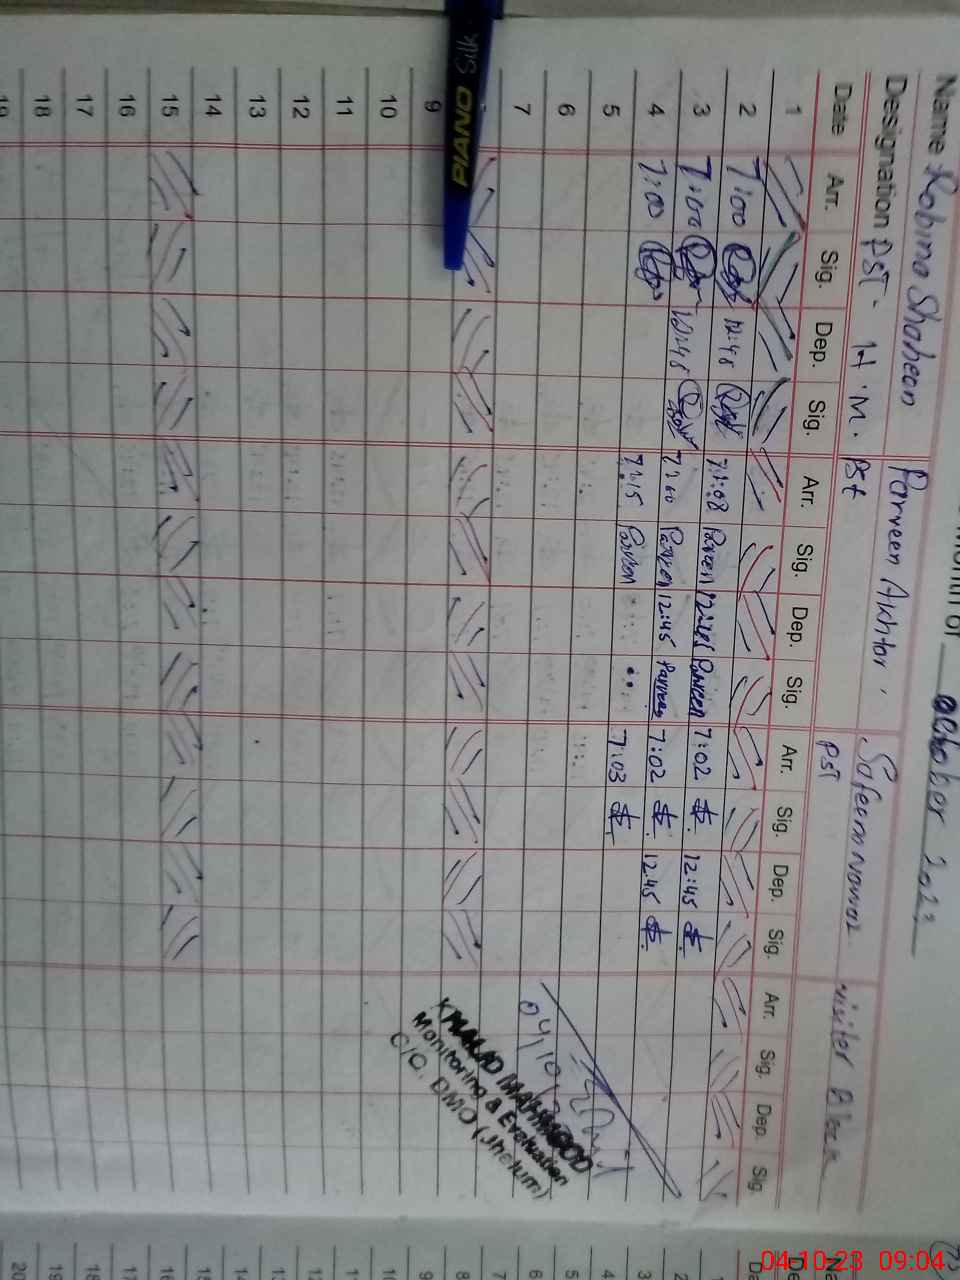 Month of October 2023
Name Robina Shaheen Parveen Akhtar Safeernawaz visiter Block
Designation PST. H.M. Pst PST
Date Arr. Sig. Dep. Sig. Arr. Sig. Dep. Sig. Arr. Sig. Dep. Sig. Arr. Sig. Dep. Sig.
1
2 7:00 12:45 7:08 Parveen 12:45 Parveen 7:02 12:45
3 7:00 12:45 7:00 Parveen 12:45 Parveen 7:02 12.45
4 7:00 7:15 Parveen 7:03
5
6
7
9
10
11
12
13
14
15
16
17
18
19
04/10/
KHALID MAHMOOD
Monitoring & Evaluation
C/O. DMO (Jhelum)
PIANO Silk
Na
De
Da
1
2
3
4
5
6
7
8
9
10
11
12
13
14
15
16
17
18
19
20
04-10-23 09:04